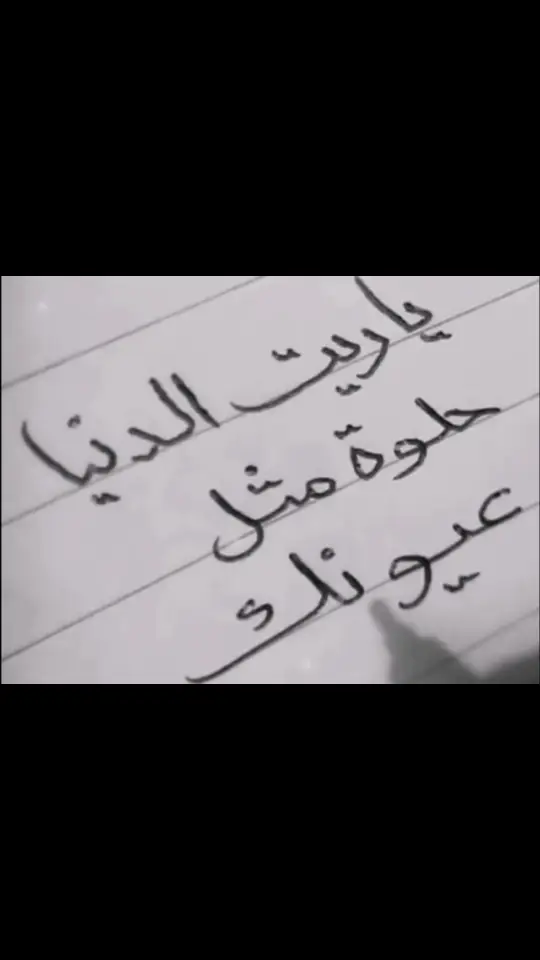 ياريت الدنيا
حلوة مثل
عيونك